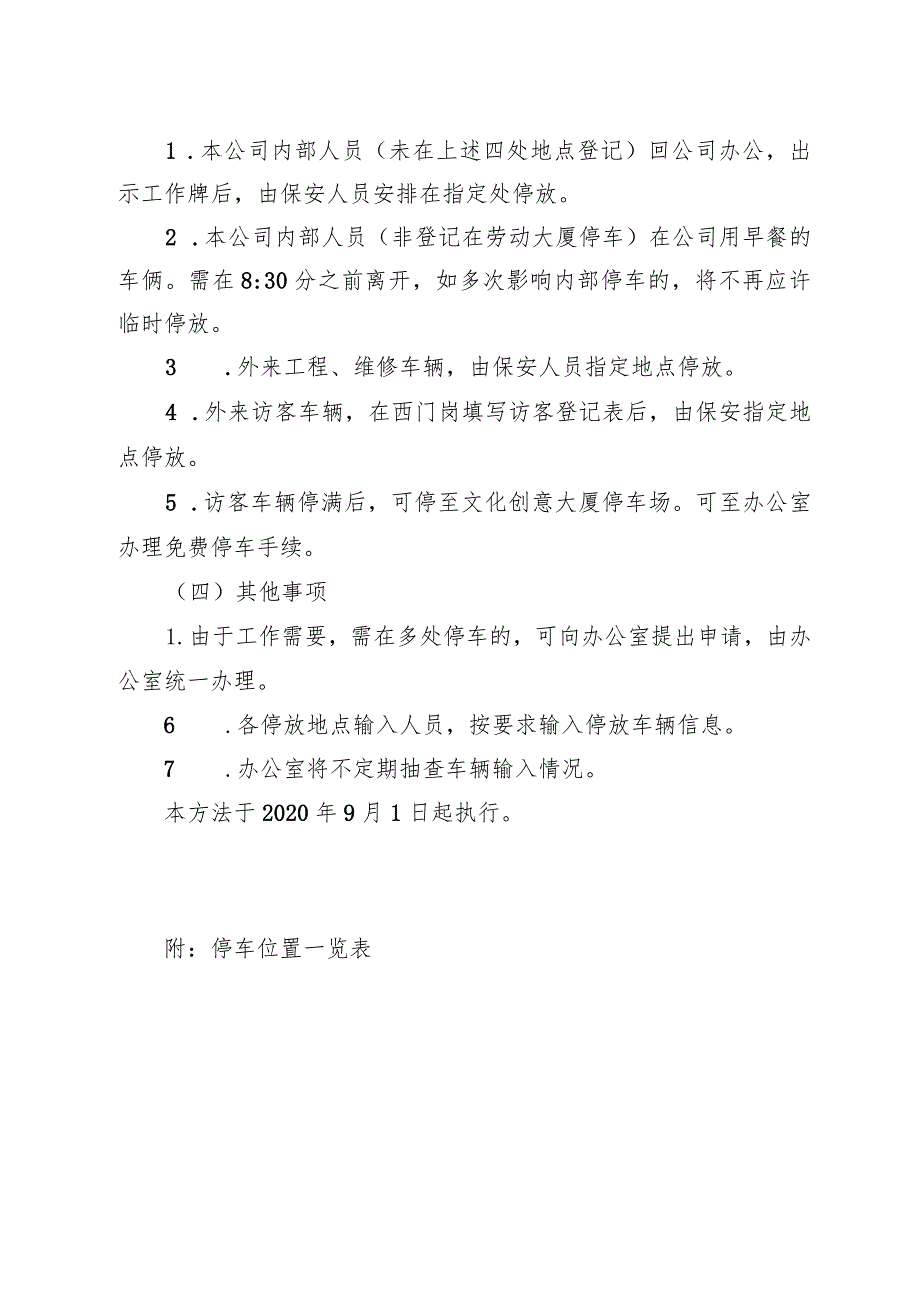 1 .本公司内部人员（未在上述四处地点登记）回公司办公，出
示工作牌后，由保安人员安排在指定处停放。
2 .本公司内部人员（非登记在劳动大厦停车）在公司用早餐的
车俩。需在 8:30 分之前离开，如多次影响内部停车的，将不再应许
临时停放。
3 .外来工程、维修车辆，由保安人员指定地点停放。
4 .外来访客车辆，在西门岗填写访客登记表后，由保安指定地
点停放。
5 .访客车辆停满后，可停至文化创意大厦停车场。可至办公室
办理免费停车手续。
（四）其他事项
1.由于工作需要，需在多处停车的，可向办公室提出申请，由办
公室统一办理。
6 .各停放地点输入人员，按要求输入停放车辆信息。
7 .办公室将不定期抽查车辆输入情况。
本方法于 2020 年 9 月 1 日起执行。
附：停车位置一览表